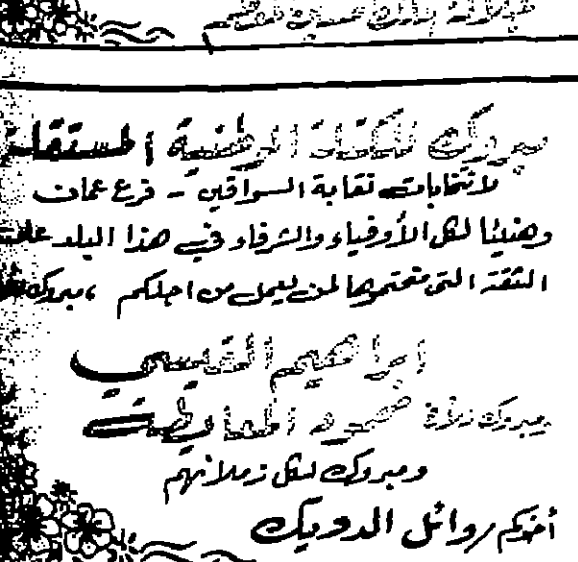 مبروك للكتلة الوطنية المستقلة
لانتخابات نقابة السواقين - فرع عمان
وهنيئا لكل الأوفياء والشرفاء في هذا البلد على
الثقة التي منحتموها لمن يعمل من اجلكم ، مبروك
ابراهيم القيسي
ومبروك محمود المعايطة
ومبروك لكل زملائهم
أخوكم / وائل الدويك